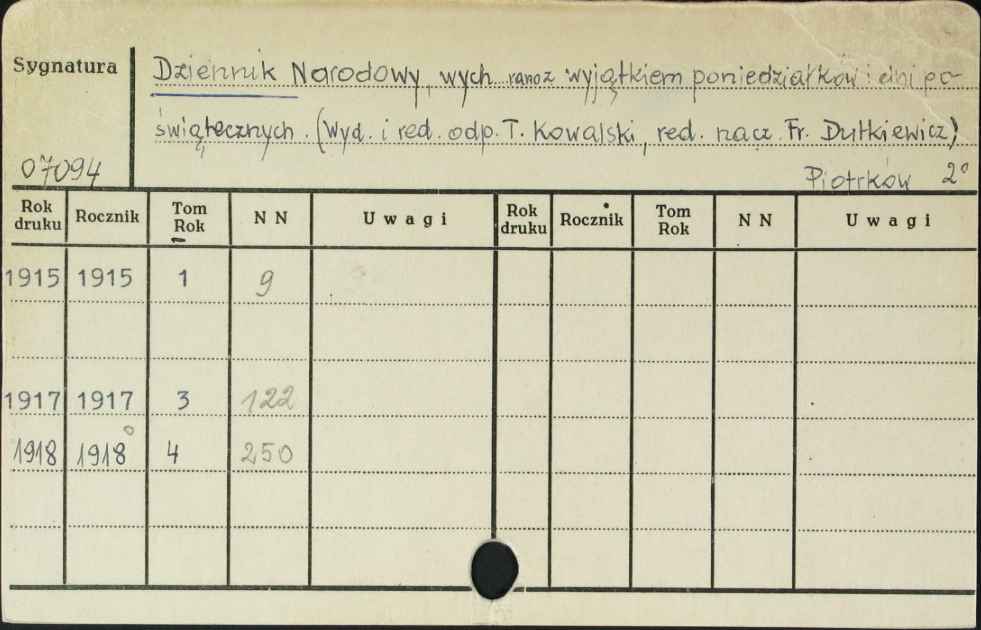 Sygnatura
Dziennik Narodowy, wych. rano z wyjątkiem poniedziałków i dni po-
świątecznych. (Wyd. i red. odp. T. Kowalski, red. nacz. Fr. Dutkiewicz)
07094 Piotrków 2°
Rok druku Rocznik Tom Rok NN Uwagi Rok druku Rocznik Tom Rok NN Uwagi
1915 1915 1 9
1917 1917 3 122
1918 1918° 4 250